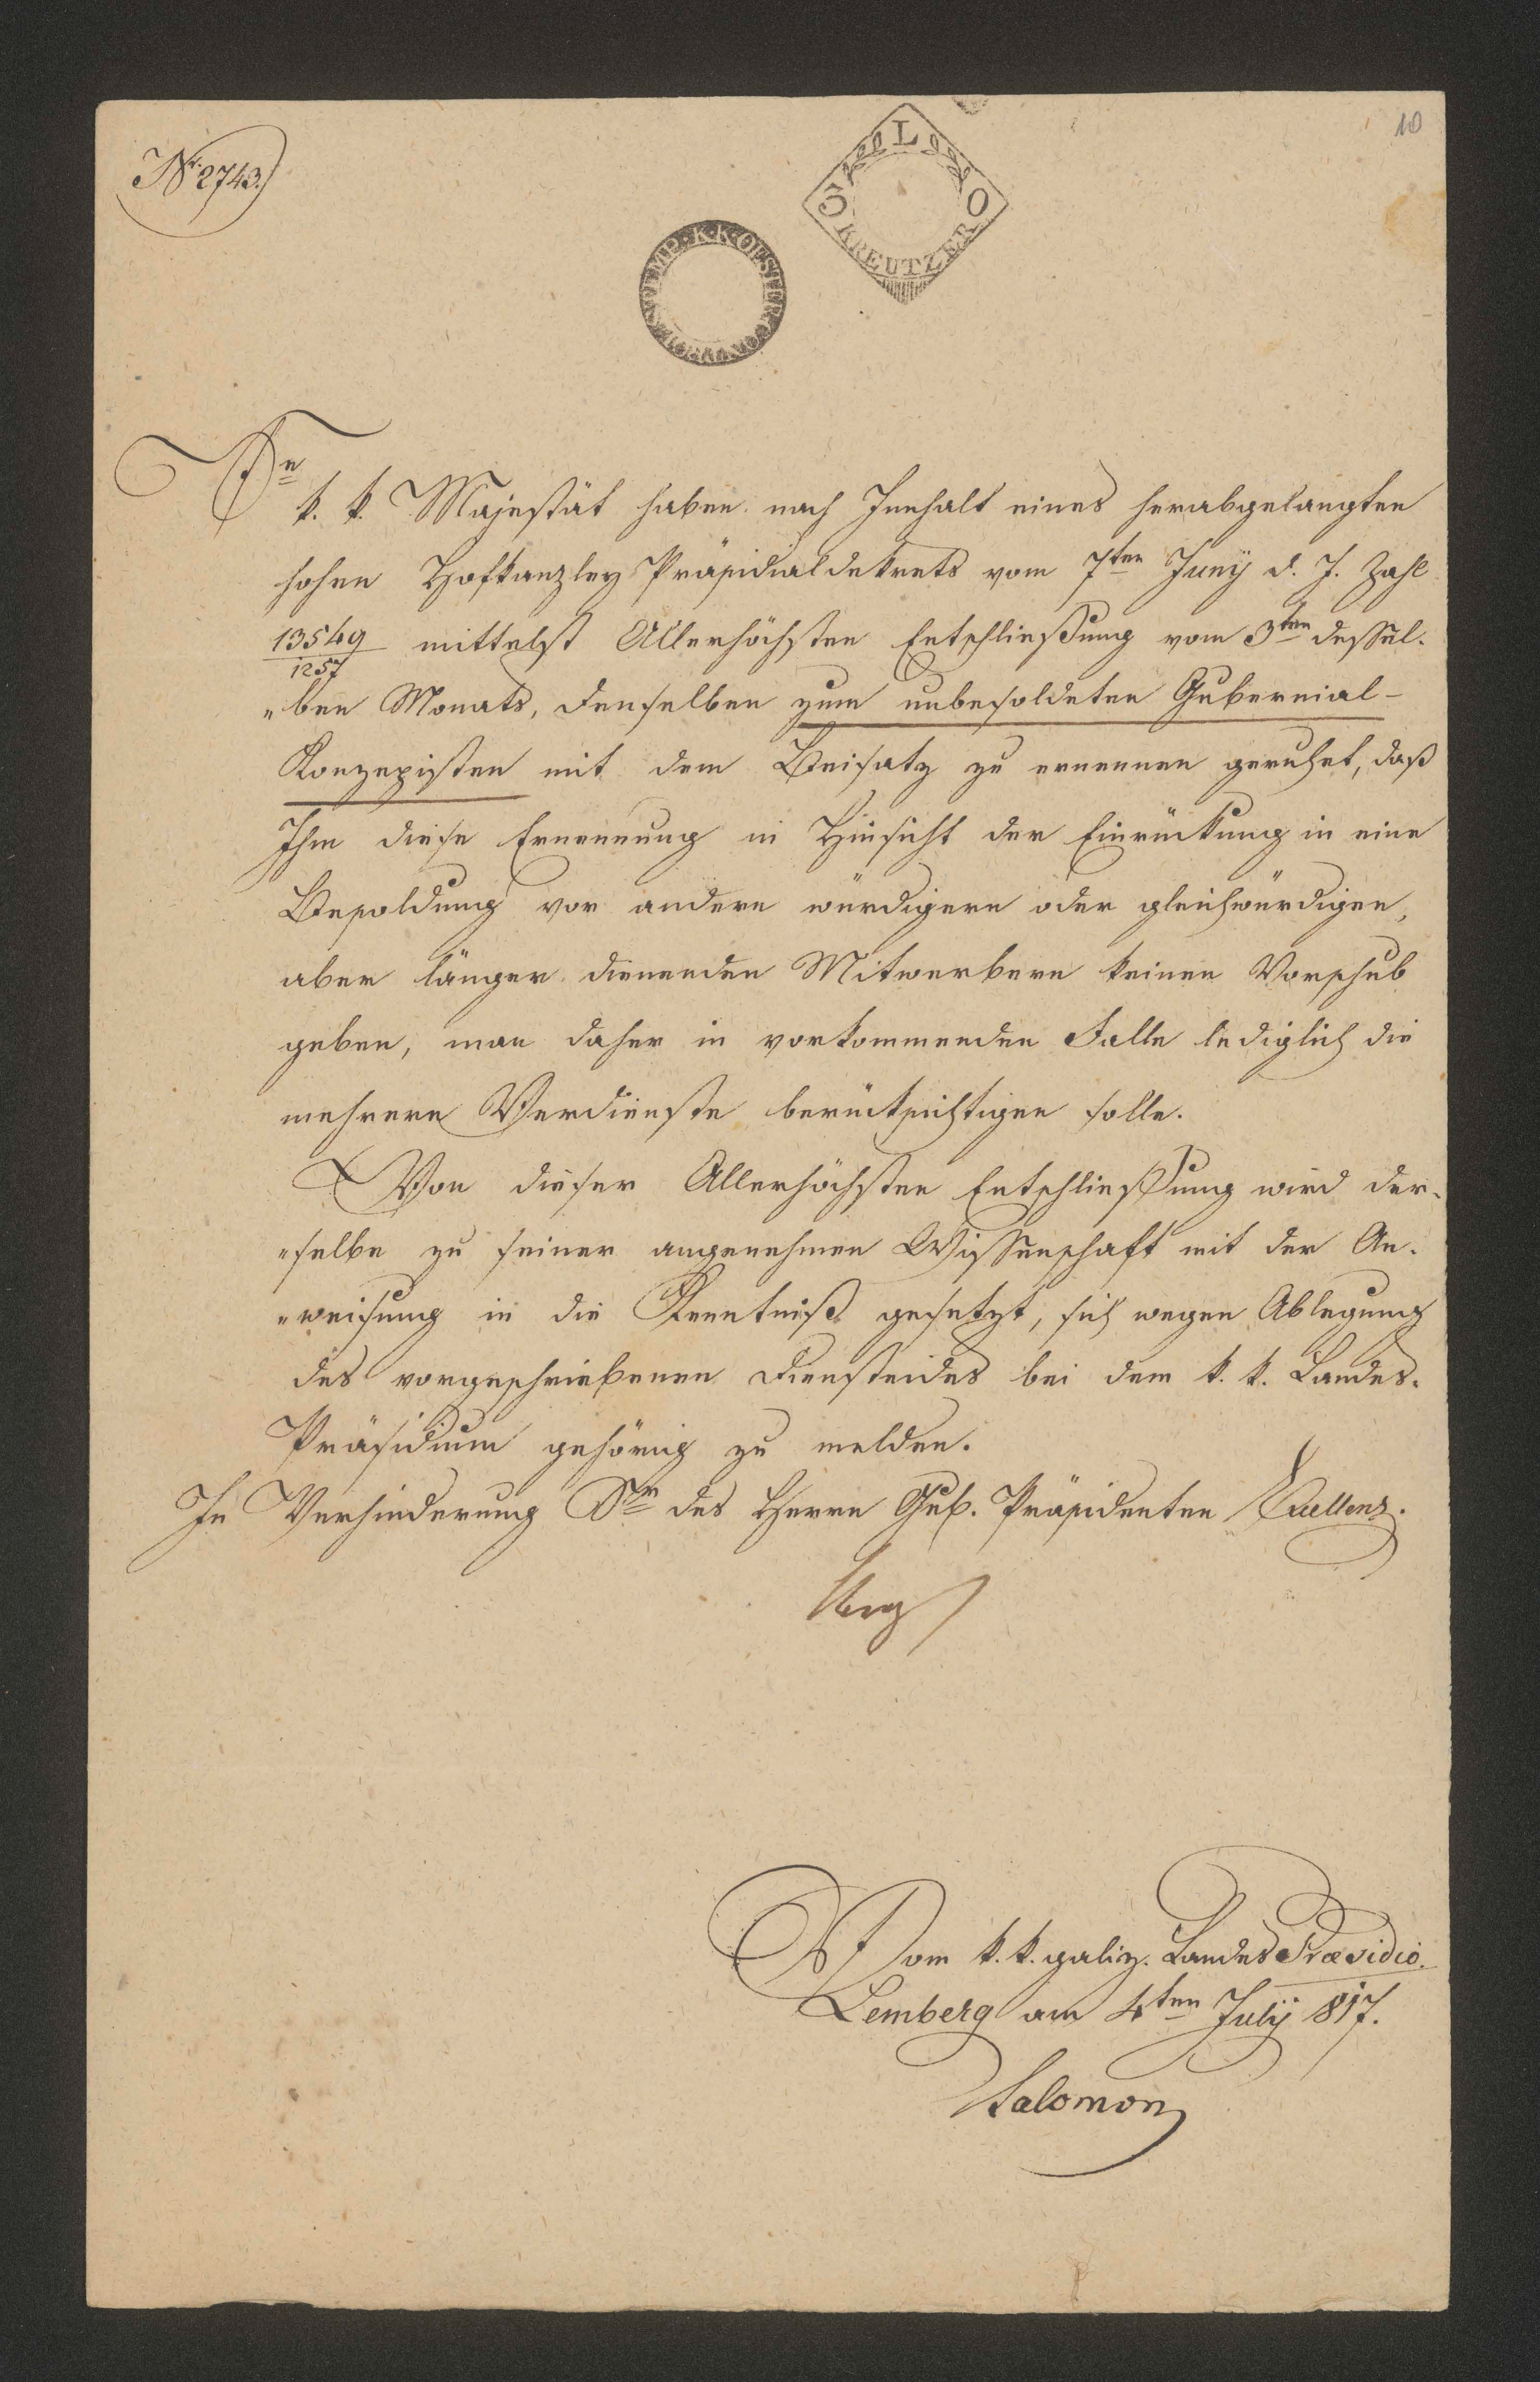 10
Nr. 2743.
L
3 0
KREUTZER
Se
k. k. Majestät haben nach Innhalt eines herabgelangten
hohen Hofkanzley Präsidialdekrets vom 7ten Junÿ d. J. Zahl
13549
1257
mittelst Allerhöchsten Entschließung vom 3ten dessel-
„ben Monats, denselben zum unbesoldeten Gubernial-
Konzepisten mit dem Beisatz zu ernennen geruhet, daß
Ihm diese Ernennung in Hinsicht der Einrückung in eine
Besoldung vor andern würdigern oder gleichwürdigen,
aber länger dienenden Mitwerbern keinen Vorschub
geben, man daher in vorkommenden Falle lediglich die
mehrern Verdienste berücksichtigen solle.
Von dieser Allerhöchsten Entschließung wird der-
„selbe zu seiner angenehmen Wissenschaft mit der An-
„weisung in die Kenntniß gesetzt, sich wegen Ablegung
des vorgeschriebenen Diensteides bei dem k. k. Landes-
Präsidium gehörig zu melden.
In Verhinderung Sr des Herrn Gub. Präsidenten Excellenz.
Vom k. k. galiz. Landes Præsidio.
Lemberg am 4ten Julÿ 817.
Salomon